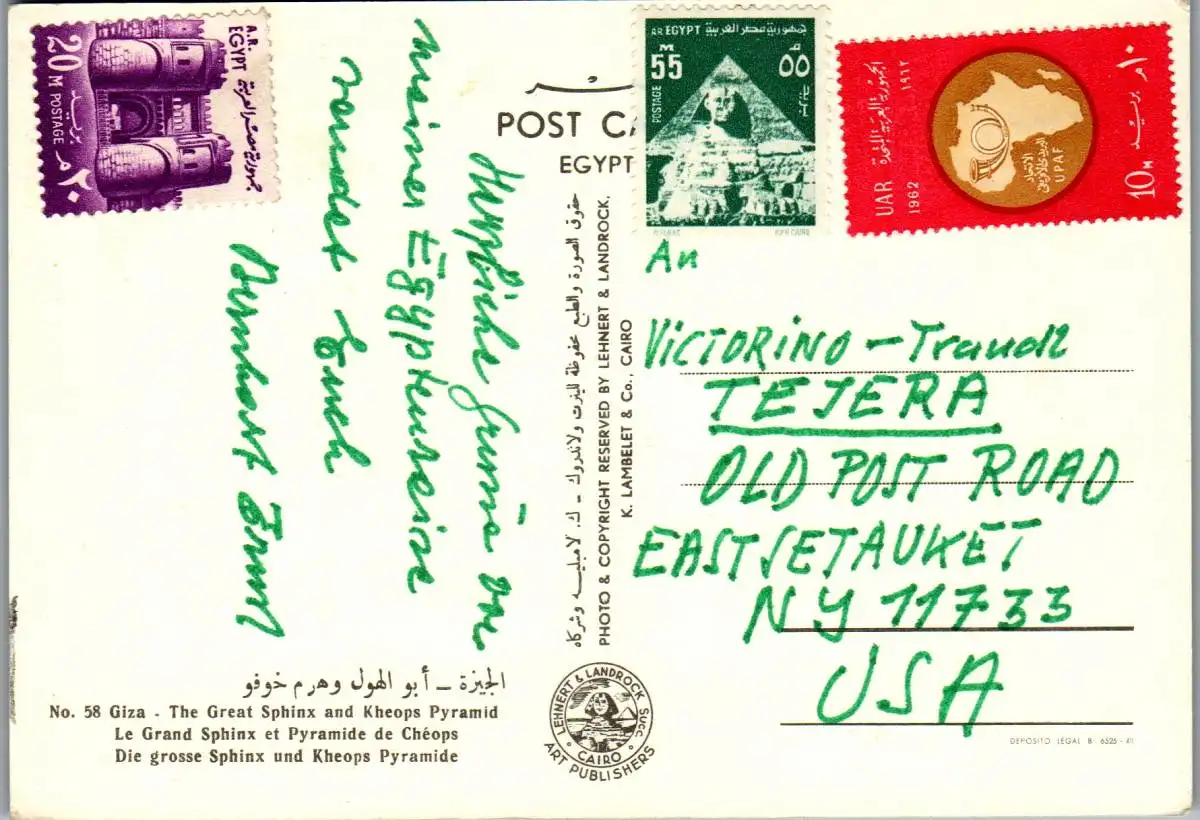 A.R. EGYPT
جمهورية مصر العربية
20 M POSTAGE
بريد
٢٠ م
POST CA
EGYPT
AR EGYPT جمهورية مصر العربية
M
55
م
٥٥
POSTAGE
بريد
UAR 1962
الجمهورية العربية المتحدة ١٩٦٢
الاتحاد
UPAF
10 M
بريد
م ١٠
Herzliche Grüsse von
meiner Egyptenreise
sendet Euch
An
VICTORINO - Traudl
TEJERA
OLD POST ROAD
EAST SETAUKET
NY 11733
USA
حقوق الصورة والطبع محفوظة للينرت ولاندروك - ك. لامبليه وشركاه
PHOTO & COPYRIGHT RESERVED BY LEHNERT & LANDROCK,
K. LAMBELET & Co., CAIRO
الجيزة – أبو الهول وهرم خوفو
No. 58 Giza - The Great Sphinx and Kheops Pyramid
Le Grand Sphinx et Pyramide de Chéops
Die grosse Sphinx und Kheops Pyramide
LEHNERT & LANDROCK SUCC.
CAIRO
ART PUBLISHERS
DEPOSITO LEGAL B 6525 -